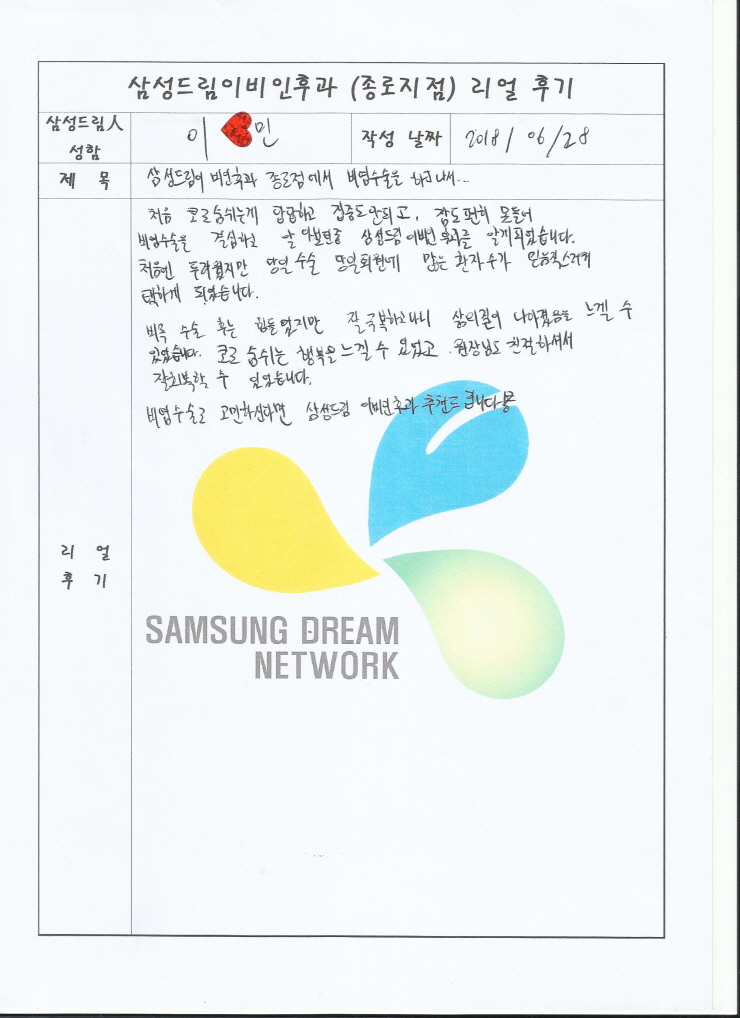 삼성드림이비인후과 (종로지점) 리얼 후기
삼성드림人
성함
이 민
작성 날짜
2018/ 06/28
제 목
삼성드림이비인후과 종로점에서 비염수술을 하고나서...
처음 코로숨쉬는게 답답하고 집중도안되고, 잠도편히 못들어
비염수술을 결심하고 알아보던중 삼성드림이비인후과를 알게되었습니다.
처음엔 두려웠지만 당일 수술 당일퇴원에 많은 환자수가 믿음직스러워
택하게 되었습니다.
비록 수술 후는 힘들었지만 잘극복하고나니 삶의질이 나아졌음을 느낄 수
있었습니다. 코로 숨쉬는 행복을느낄수 있었고 원장님도 친절하셔서
잘회복할 수 있었습니다.
비염수술로 고민하신다면 삼성드림 이비인후과 추천드립니다
리 얼
후 기
SAMSUNG DREAM
NETWORK